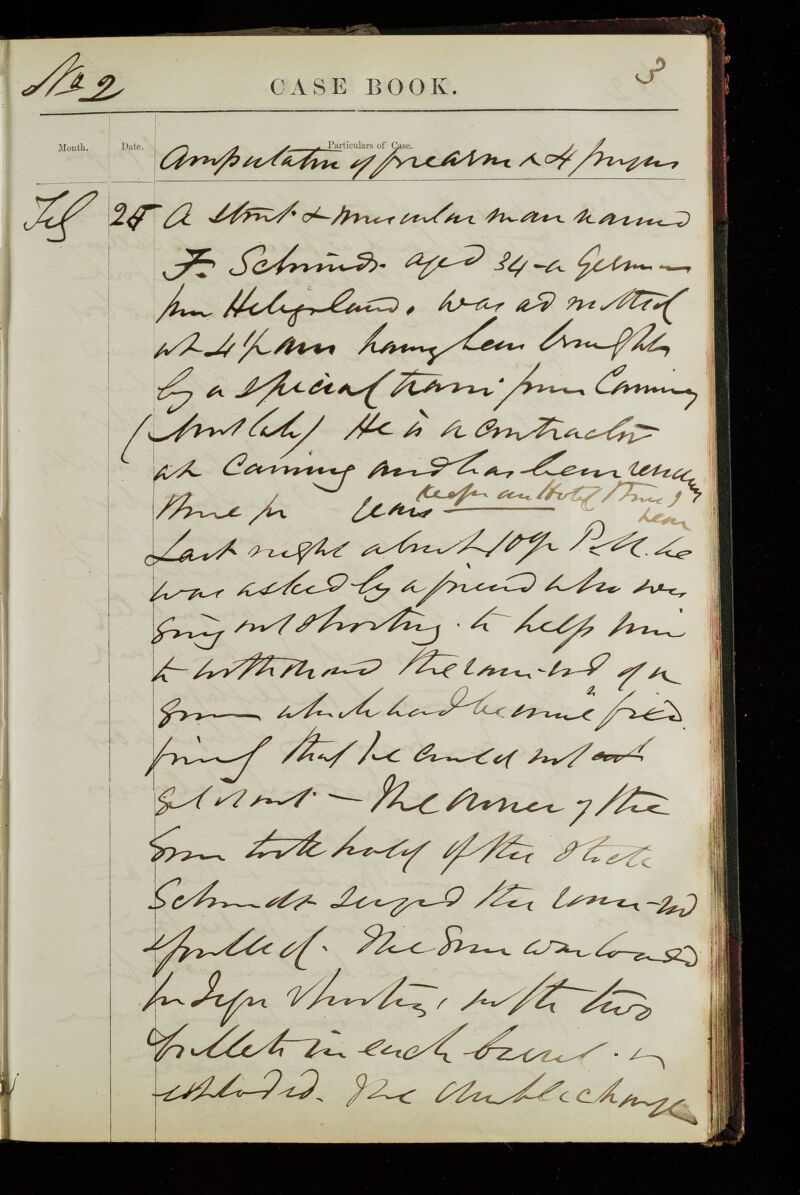 No 2
CASE BOOK.
3
Month.
Date.
Particulars of Case.
Amputation of forearm & 4 fingers
Feb 25 A stout & muscular man named
F. Schmidt aged 34 - a German
from Heligoland. was admitted
at 4½ am having been brought
by a special train from
He is a contractor
at and has been residing
there for years keeps an Hotel
Last night about 10 P.M. he
was asked by a friend who was
going out shooting. to help him
to withdraw the ram-rod of a
gun which had become fixed
that he could not
get it out - The owner of the
gun took hold of the stock
Schmidt seized the ram-rod
& pulled. The Gun was loaded
for shooting, with two
bullets in each barrel. &
exploded. The double charge